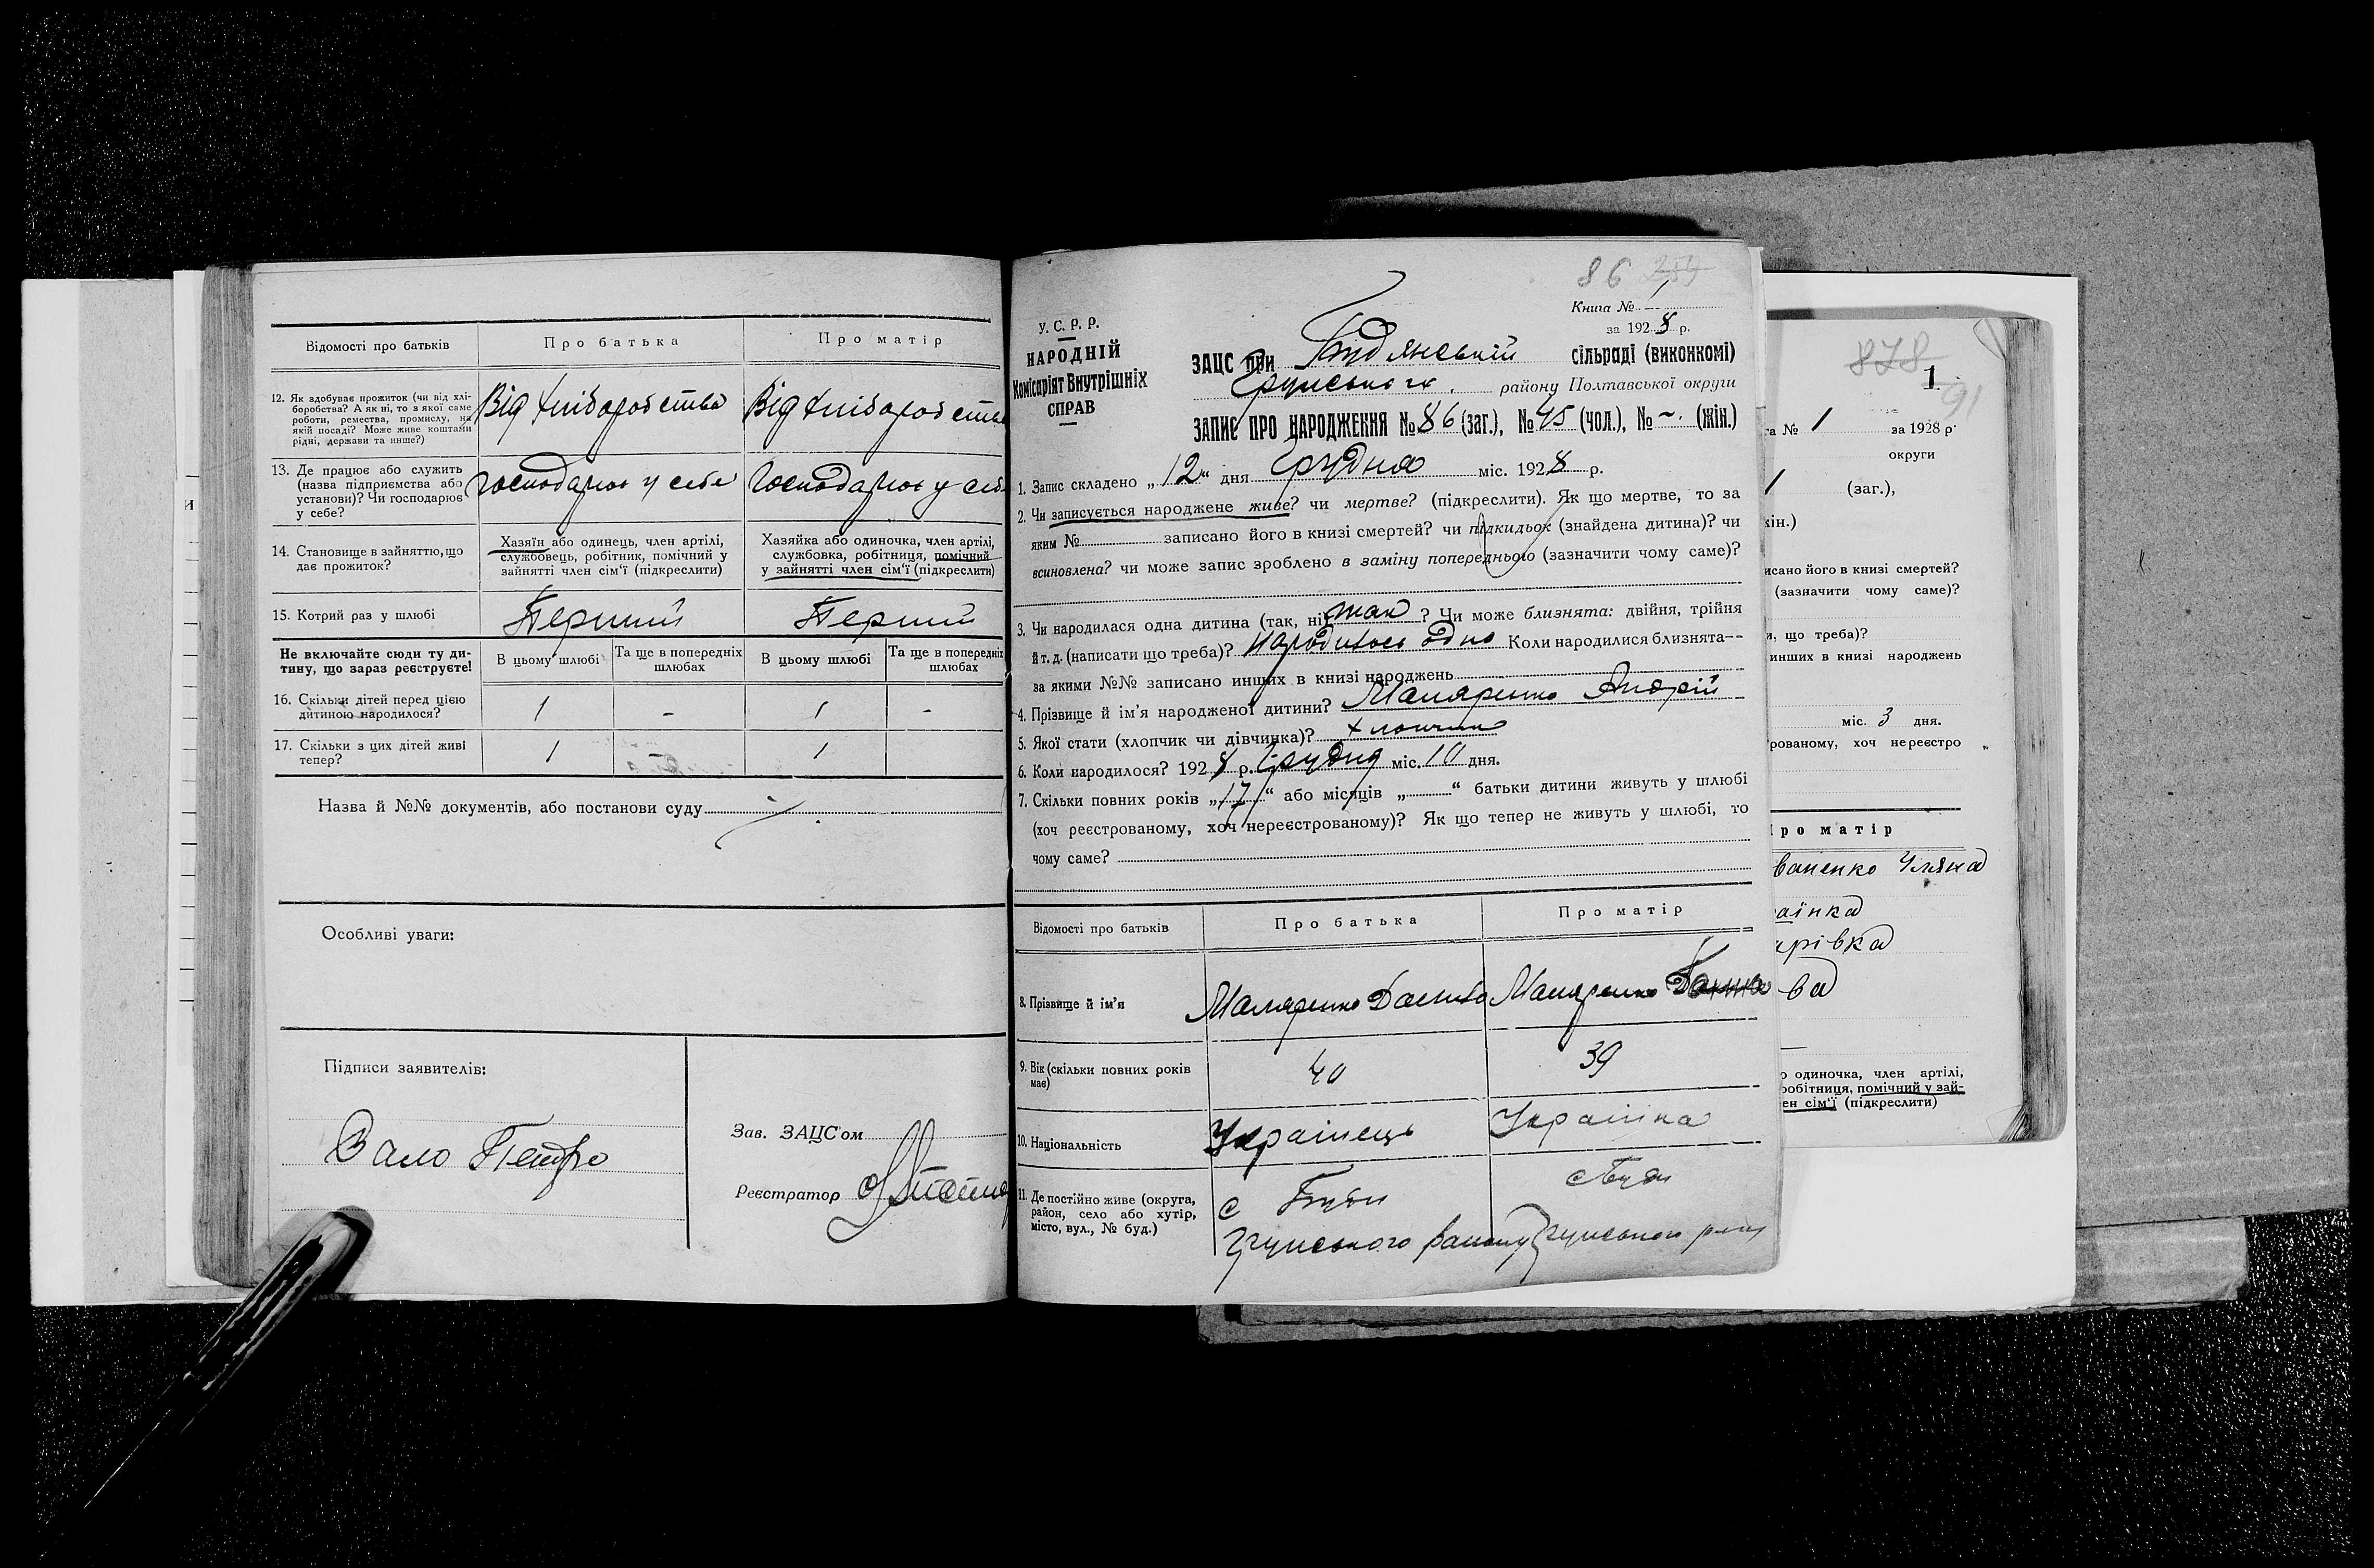 Відомості про батьків
Про батька
Про матір
12. Як здобуває прожиток (чи від хлі-
боробства? А як ні, то з якої саме
роботи, ремества, промислу, на
якій посаді? Може живе коштами
рідні, держави та инше?)
Від хліборобства
Від хліборобства
13. Де працює або служить
(назва підприємства або
установи)? Чи господарює
у себе?
Господарює у себе
Господарює у себе
14. Становище в зайняттю, що
дає прожиток?
Хазяїн або одинець, член артілі,
службовець, робітник, помічний у
зайнятті член сім'ї (підкреслити)
Хазяйка або одиночка, член артілі,
службовка, робітниця, помічний
у зайнятті член сім'ї (підкреслити)
15. Котрий раз у шлюбі
Перший
Перший
Не включайте сюди ту ди-
тину, що зараз реєструєте!
В цьому шлюбі
Та ще в попередніх
шлюбах
В цьому шлюбі
Та ще в попередніх
шлюбах
16. Скільки дітей перед цією
дитиною народилося?
1 - 1 -
17. Скільки з цих дітей живі
тепер?
1 - 1
Назва й №№ документів, або постанови суду
Особливі уваги:
Підписи заявителів:
Зало Петро
Зав. ЗАЦС'ом
Реєстратор
86 259
Книга № 1
за 1928 р.
У. С. Р. Р.
НАРОДНІЙ
Комісаріят Внутрішніх
СПРАВ
ЗАЦС при Будянській сільраді (виконкомі)
Грунського району Полтавської округи
ЗАПИС ПРО НАРОДЖЕННЯ № 86 (заг.), № 45 (чол.), № ~ (жін.)
1. Запис складено „12“ дня Грудня міс. 1928 р.
2. Чи записується народжене живе? чи мертве? (підкреслити). Як що мертве, то за
яким № записано його в книзі смертей? чи підкидьок (знайдена дитина)? чи
всиновлена? чи може запис зроблено в заміну попереднього (зазначити чому саме)?
3. Чи народилася одна дитина (так, ні) так ? Чи може близнята: двійня, трійня
й т. д. (написати що треба)? Народилось одно Коли народилися близнята—
за якими №№ записано инших в книзі народжень
4. Прізвище й ім'я народженої дитини? Маляренко Андрій
5. Якої стати (хлопчик чи дівчинка)? хлопчик
6. Коли народилося? 1928 р. Грудня міс. 10 дня.
7. Скільки повних років „17“ або місяців „ “ батьки дитини живуть у шлюбі
(хоч реєстрованому, хоч нереєстрованому)? Як що тепер не живуть у шлюбі, то
чому саме?
Відомості про батьків
Про батька
Про матір
8. Прізвище й ім'я
Маляренко Данило
Маляренко
9. Вік (скільки повних років
має)
40
39
10. Національність
Українець
Українка
11. Де постійно живе (округа,
район, село або хутір,
місто, вул., № буд.)
с Буди
Грунського району
с Буди
Грунського району
878
1.
91
га № 1 за 1928 р.
округи
1 (заг.),
кін.)
исано його в книзі смертей?
(зазначити чому саме)?
и, що треба)?
инших в книзі народжень
міс. 3 дня.
рованому, хоч нереєстро
Про матір
ваненко Уляна
аїнка
арівка
ва
о одиночка, член артілі,
робітниця, помічний у зай-
ен сім'ї (підкреслити)